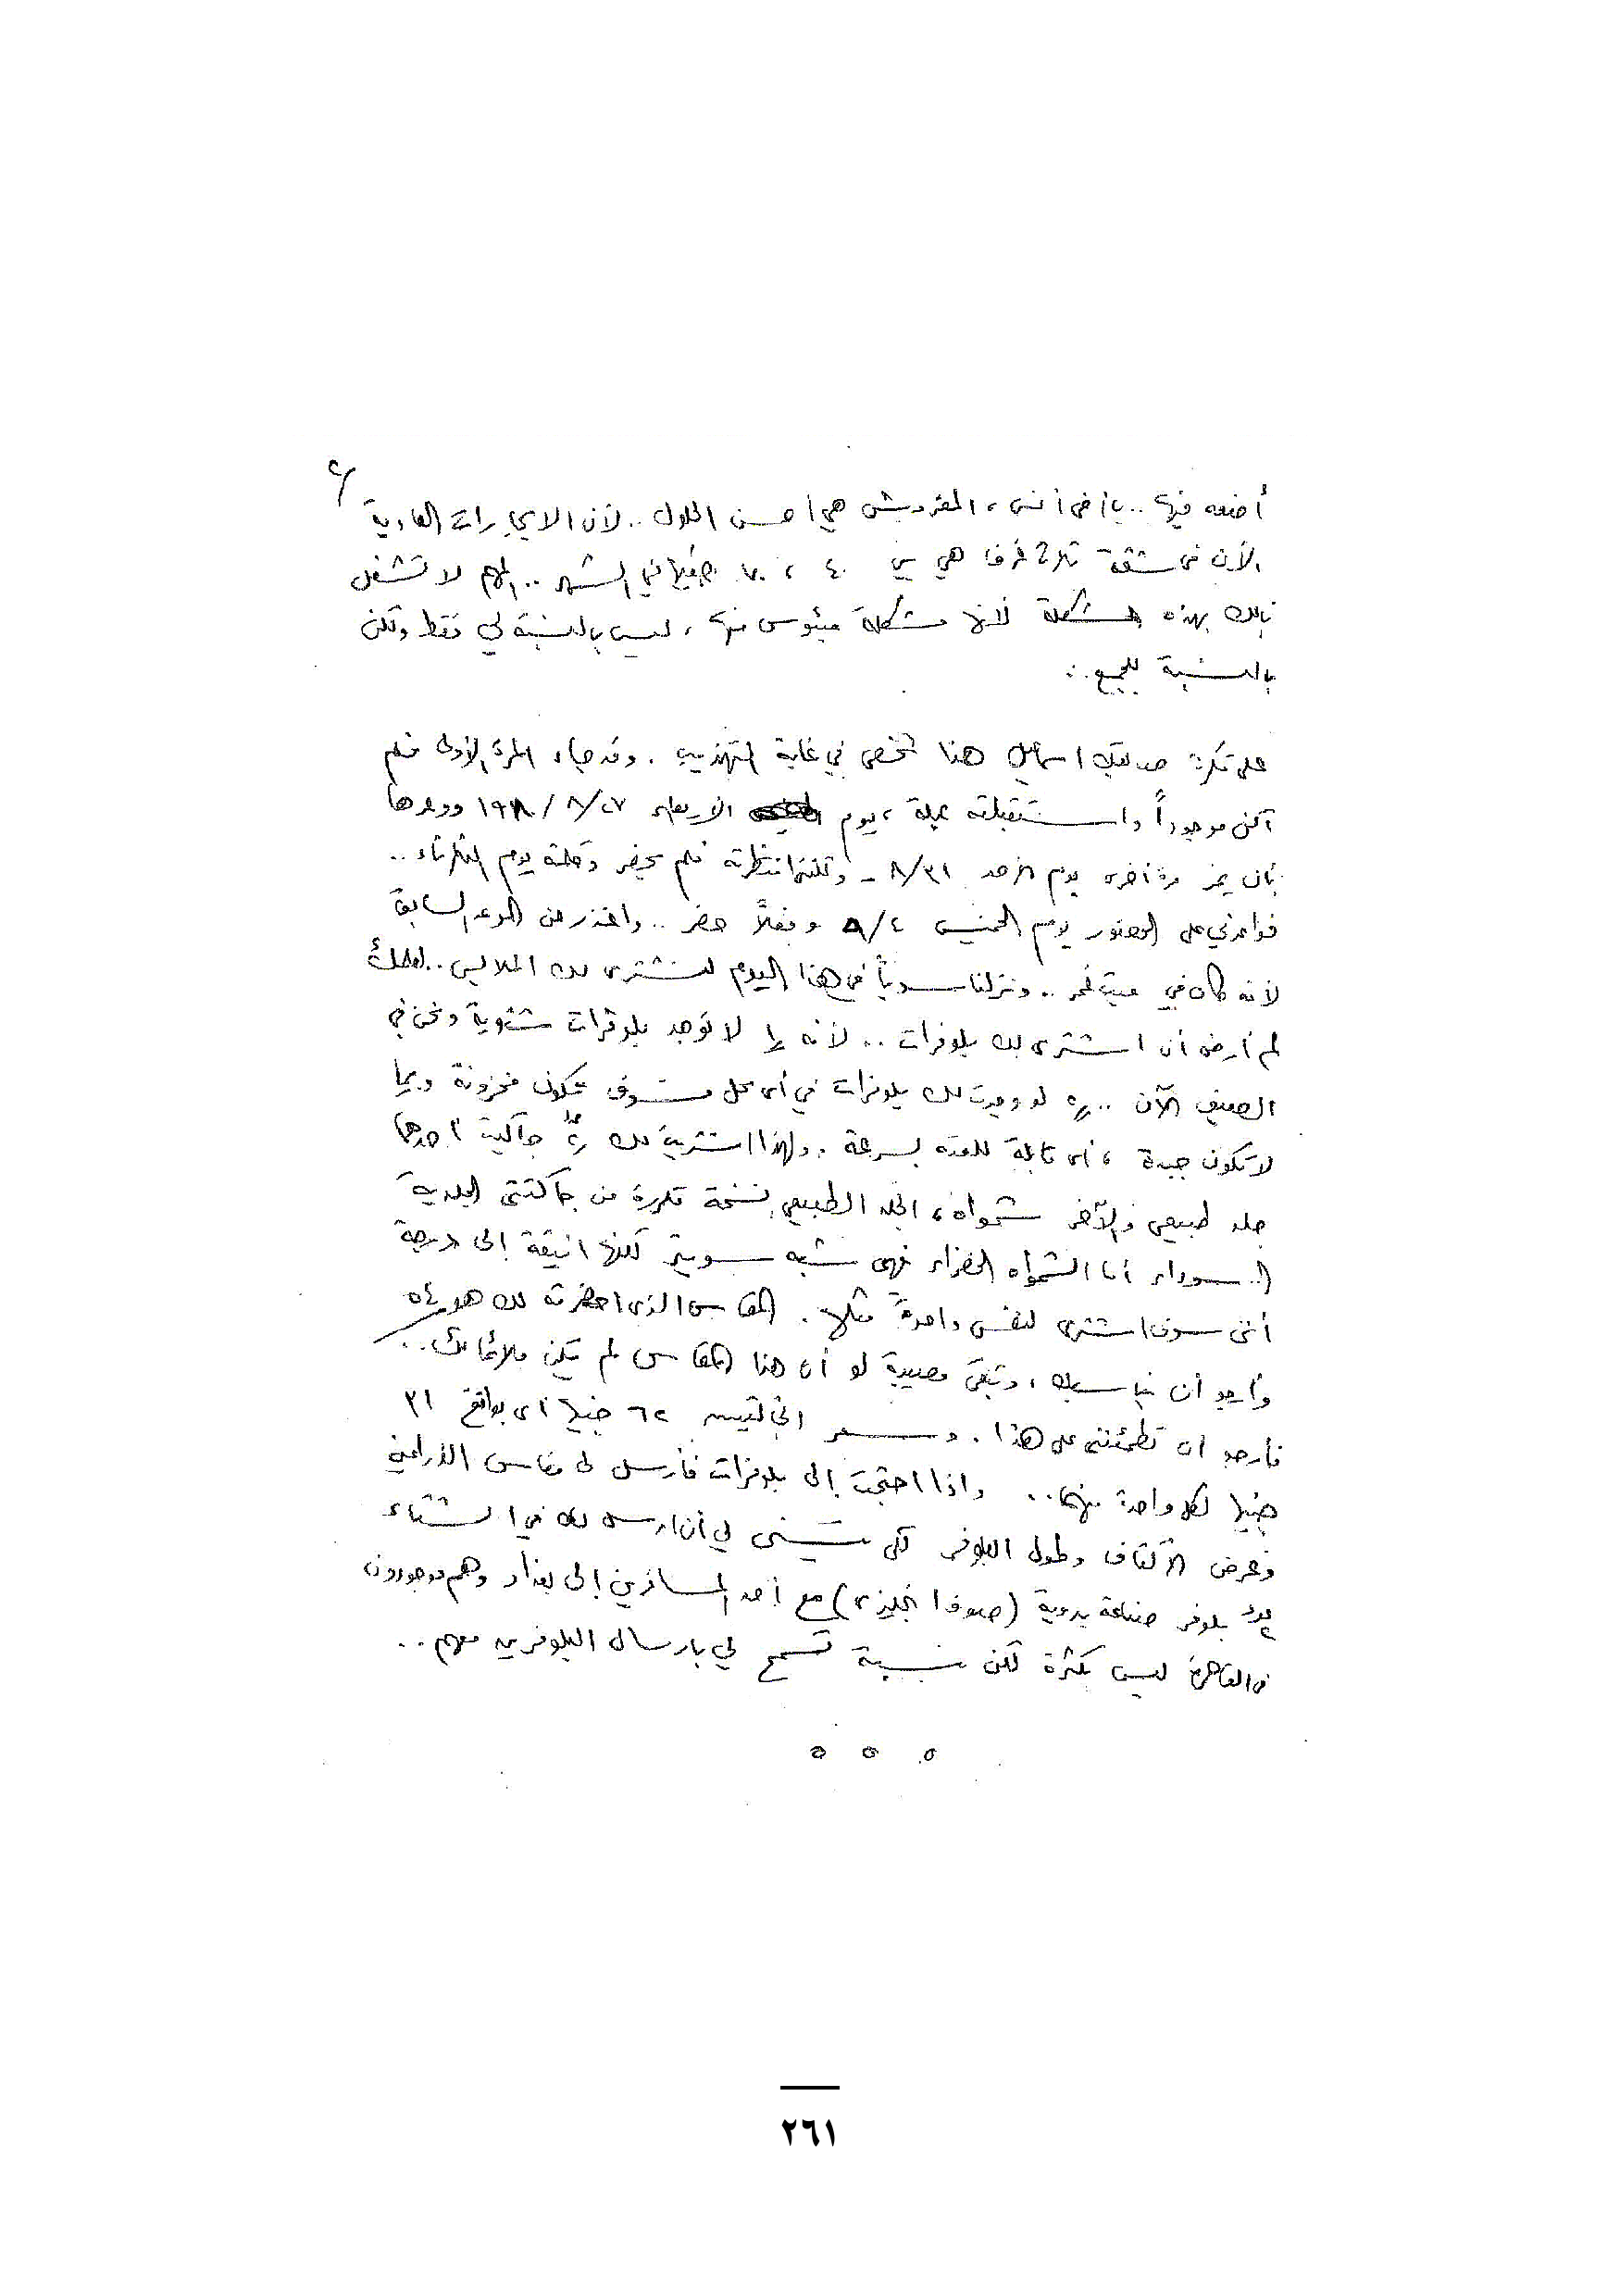 ٢/
أضعه فيها .. يا أخى أنس ، المفروش هي أحسن الحلول .. لأن الايجارات العادية
الآن فى شقة ثلاث غرف هي بين ٤٠ ، ٧٠ جنيها في الشهر .. المهم لا تشغل
بالك بهذه المشكلة لأنها مشكلة ميئوس منها ، ليس بالنسبة لي فقط ولكن
بالنسبة للجميع ..
على فكرة صديقك اسماعيل هذا شخص في غاية التهذيب . وقد جاء المرة الأولى فلم
أكن موجوداً واستقبلته عبلة ، يوم الاربعاء ٨/٢٧/ ١٩٨٠ ووعدها
بأن يمر مرة أخرى يوم الأحد ٨/٣١ - انتظرته فلم يحضر وكلمته يوم الثلاثاء ..
فواعدني على الحضور يوم الخميس ٤/ وفعلاً حضر .. واعتذر عن الموعد السابق
لأنه كان في ميت غمر .. ونزلنا سوياً فى هذا اليوم لنشترى لك الملابس ..
لم أرض أن اشترى لك بلوفرات .. لأنه لا توجد بلوفرات شتوية ونحن في
الصيف الآن .. لو وجدت لك بلوفرات في أى محل فسوف تكون مخزونة وربما
لا تكون جيدة ، أى قابلة للعته بسرعة . ولهذا اشتريت لك جاكيت أحدهما
جلد طبيعى والآخر شمواه ، الجلد الطبيعى نسخة مكررة من جاكتتى الجلدية
السوداء أما الشمواه الخضراء فهى شبه سويتر لكنها انيقة إلى درجة
أننى سوف اشترى لنفسى واحدة مثلها . المقاس الذى احضرته لك هو ٥٤
وأرجو أن يناسبك ، وتبقى مصيبة لو أن هذا المقاس لم يكن ملائما لك ..
فأرجو ان تطمئننى على هذا . وسعر الجاكتتين ٦٢ جنيها أى بواقع ٣١
جنيها لكل واحدة منهما .. واذا احتجت إلى بلوفرات فأرسل لى مقاس الذراعين
وعرض الأكتاف وطول البلوفر لكى يتسنى لي أن ارسل لك في الشتاء
عدد ٢ بلوفر صناعة يدوية (صوف انجليزى) مع أحد المسافرين إلى بغداد وهم موجودون
فى القاهرة ليس بكثرة لكن بنسبة تسمح لي بارسال البلوفرين معهم ..
٥ ٥ ٥
٢٦١